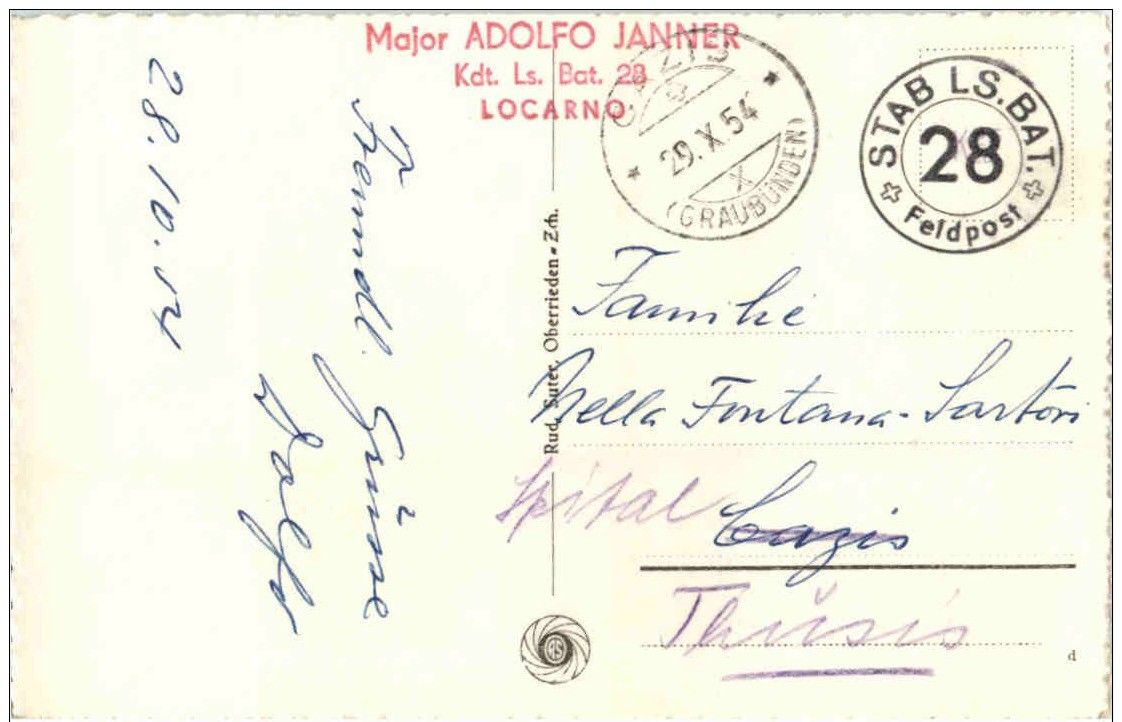 Major ADOLFO JANNER
Kdt. Ls. Bat. 28
LOCARNO
CAZIS
29.X.54
X
(GRAUBÜNDEN)
STAB LS. BAT.
28
Feldpost
28.10.54
Freundl. Grüsse
Dolfo
Rud. Suter, Oberrieden - Zch.
Familie
Nella Fontana-Sartori
Spital Cazis
Thusis
RS
d